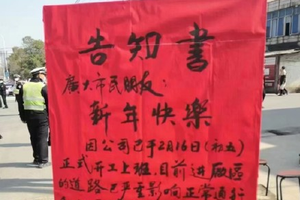 告知書
廣大市民朋友:
新年快樂
因公司已于2月16日(初五)
正式开工上班,目前进廠區
的道路已严重影响正常通行